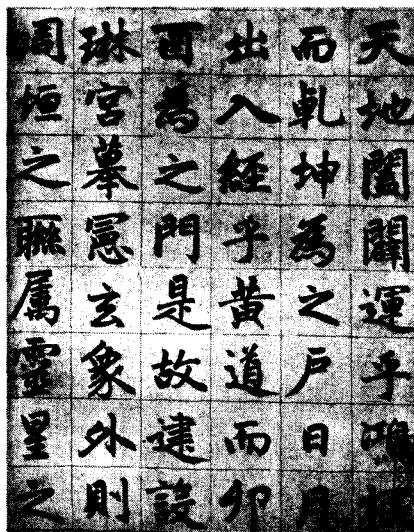 天地闔闢運乎鴻樞
而乹坤為之戶日月
出入經乎黃道而卯
酉為之門是故建設
琳宮摹憲玄象外則
周垣之聯属靈星之